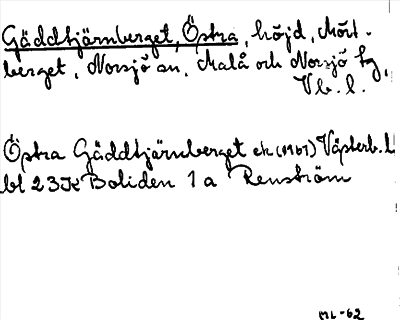 Gäddtjärnberget, Östra, höjd, Mört-
berget, Norsjö sn, Malå och Norsjö tg,
Vb. l.
Östra Gäddtjärnberget ek (1961) Västerb. l
bl 23K Boliden 1a Renström
ML-62